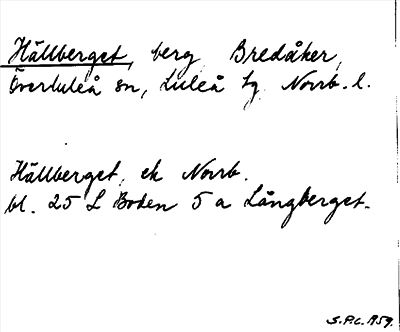 Hällberget, berg Bredåker,
Överluleå sn, Luleå tg. Norrb. l.
Hällberget, ek Norrb.
bl. 25 L Boden 5 a Långberget.
S.P.C. 1959.